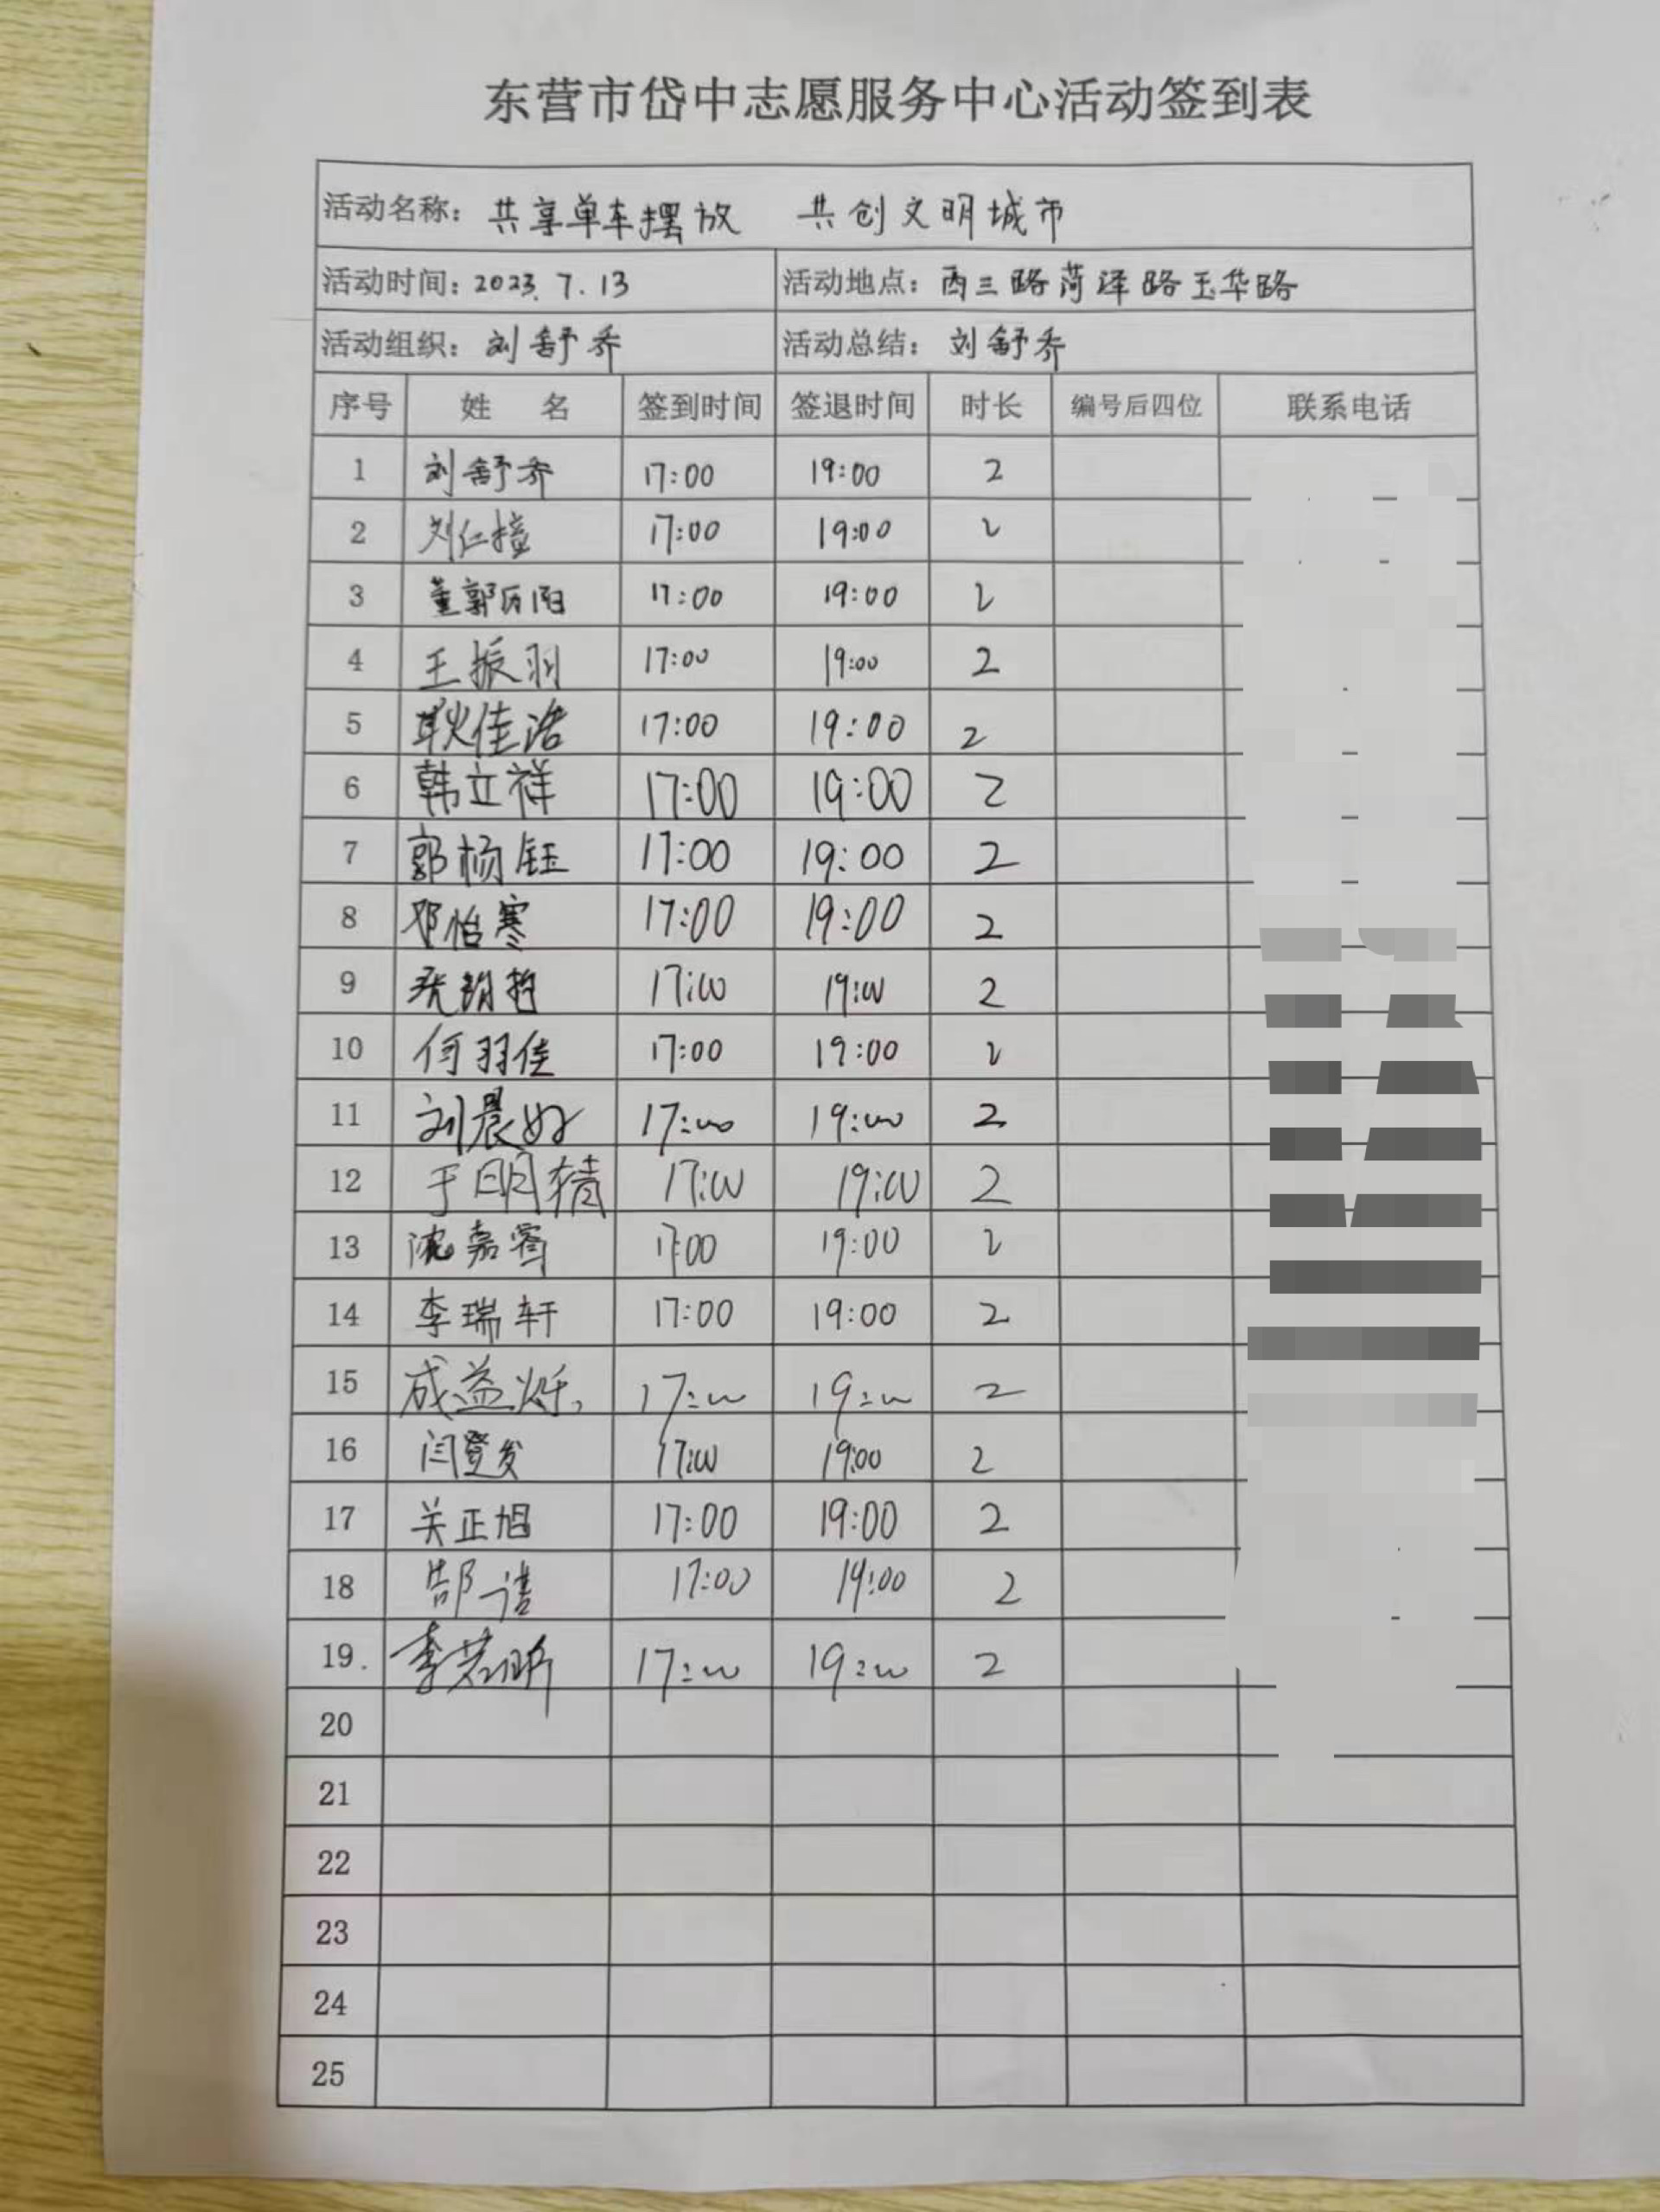 东营市岱中志愿服务中心活动签到表
活动名称：共享单车摆放 共创文明城市
活动时间：2023.7.13 活动地点：西三路菏泽路玉华路
活动组织：刘舒乔 活动总结：刘舒乔
序号 姓 名 签到时间 签退时间 时长 编号后四位 联系电话
1 刘舒乔 17:00 19:00 2
2 刘仁 17:00 19:00 2
3 董郭历阳 17:00 19:00 2
4 王振羽 17:00 19:00 2
5 耿佳浩 17:00 19:00 2
6 韩立祥 17:00 19:00 2
7 郭杨钰 17:00 19:00 2
8 邓怡寒 17:00 19:00 2
9 17:00 19:00 2
10 何羽佳 17:00 19:00 2
11 刘晨好 17:00 19:00 2
12 于明 17:00 19:00 2
13 沈嘉 17:00 19:00 2
14 李瑞轩 17:00 19:00 2
15 成益烁 17:00 19:00 2
16 闫登发 17:00 19:00 2
17 关正旭 17:00 19:00 2
18 17:00 19:00 2
19. 李若昕 17:00 19:00 2
20
21
22
23
24
25